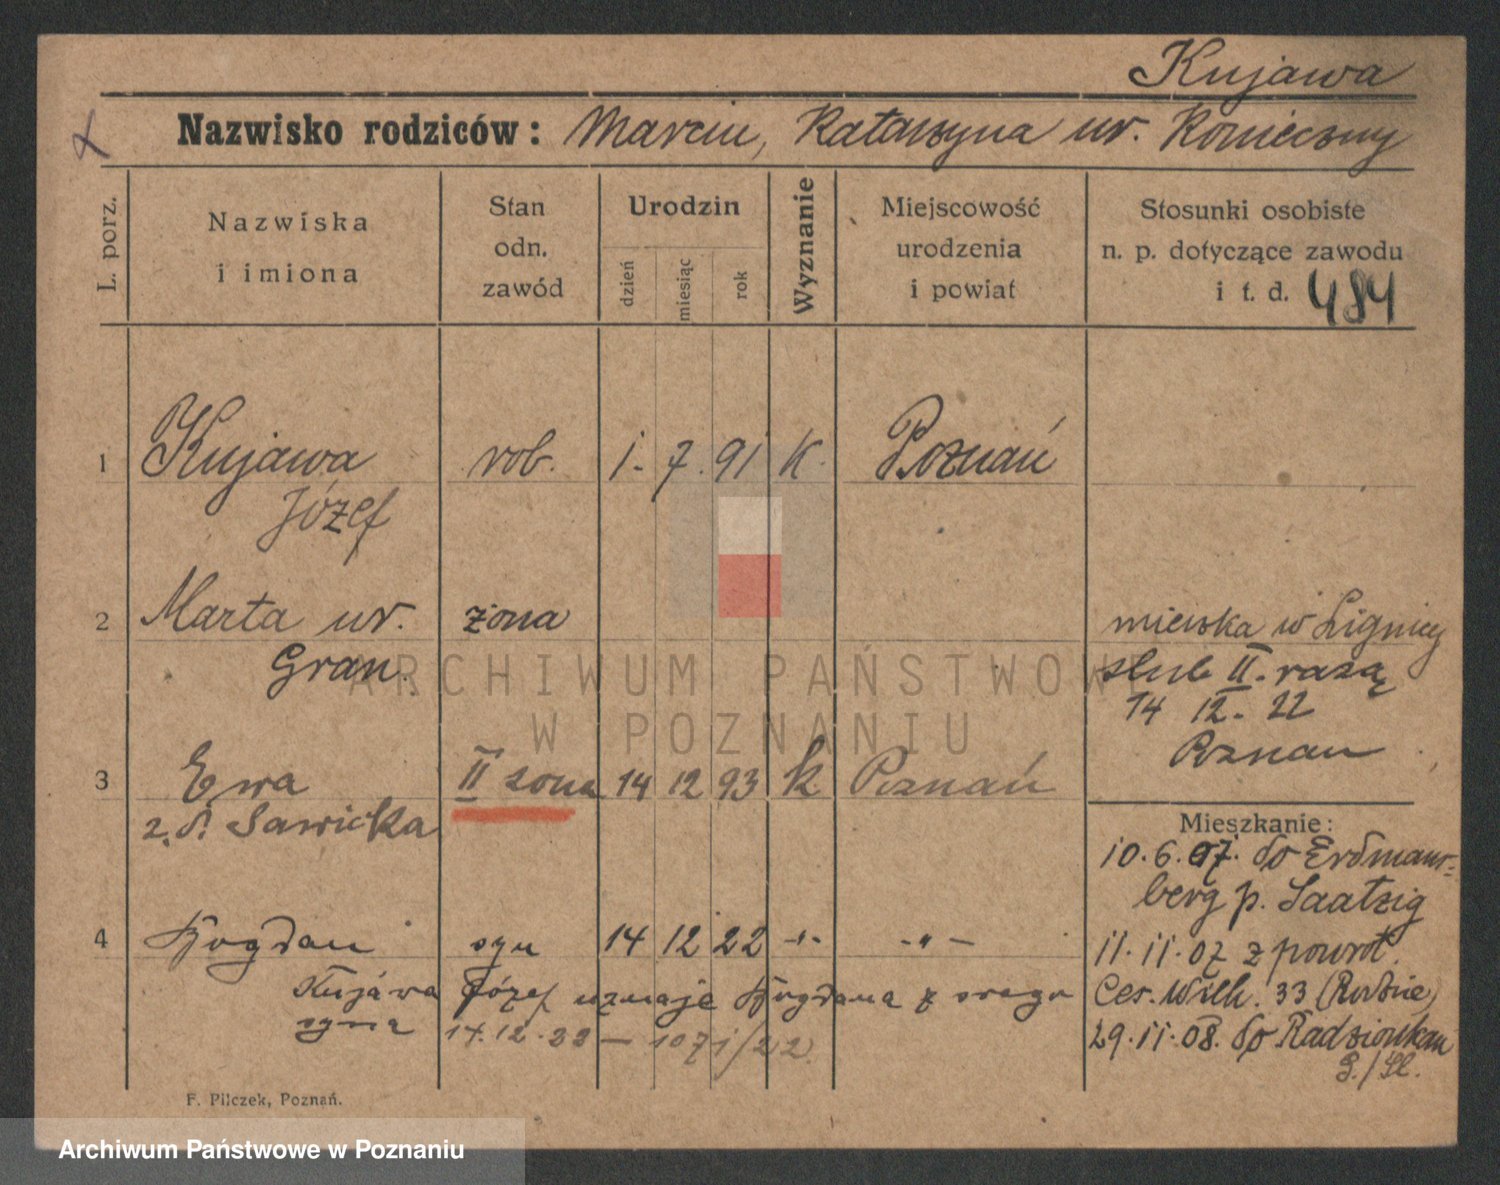 Kujawa
Nazwisko rodziców: Marcin, Katarzyna ur. Konieczny
L. porz.
Nazwiska
i imiona
Stan
odn.
zawód
Urodzin
dzień
miesiąc
rok
Wyznanie
Miejscowość
urodzenia
i powiat
Stosunki osobiste
n. p. dotyczące zawodu
i t. d. 484
1 Kujawa rob. 1. 7. 91 K. Poznań
Józef
2 Marta ur. żona
Gran.
mieska w Lignicy
slub II. razą
14 12. 22
Poznan
3 Ewa II zona 14 12 93 k Poznań
z. d. Sawicka
Mieszkanie:
10.6.07. do Erdmans-
berg p. Saatzig
4 Bogdan syn 14 12 22 -"- -"-
11.11.07 z powrot.
Kujawa Józef uznaje Bogdana z swego
syna 14.12.22 — 1071/22.
Ces. Wilh. 33 (Rodzice)
29.11.08. do Radzionkau
G./Sl.
F. Pilczek, Poznań.
ARCHIWUM PAŃSTWOWE
W POZNANIU
Archiwum Państwowe w Poznaniu